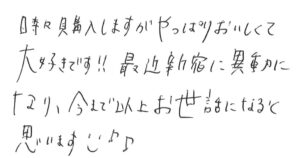 時々購入しますがやっぱりおいしくて
大好きです!! 最近新宿に異動に
なり、今まで以上お世話になると
思います♪♪